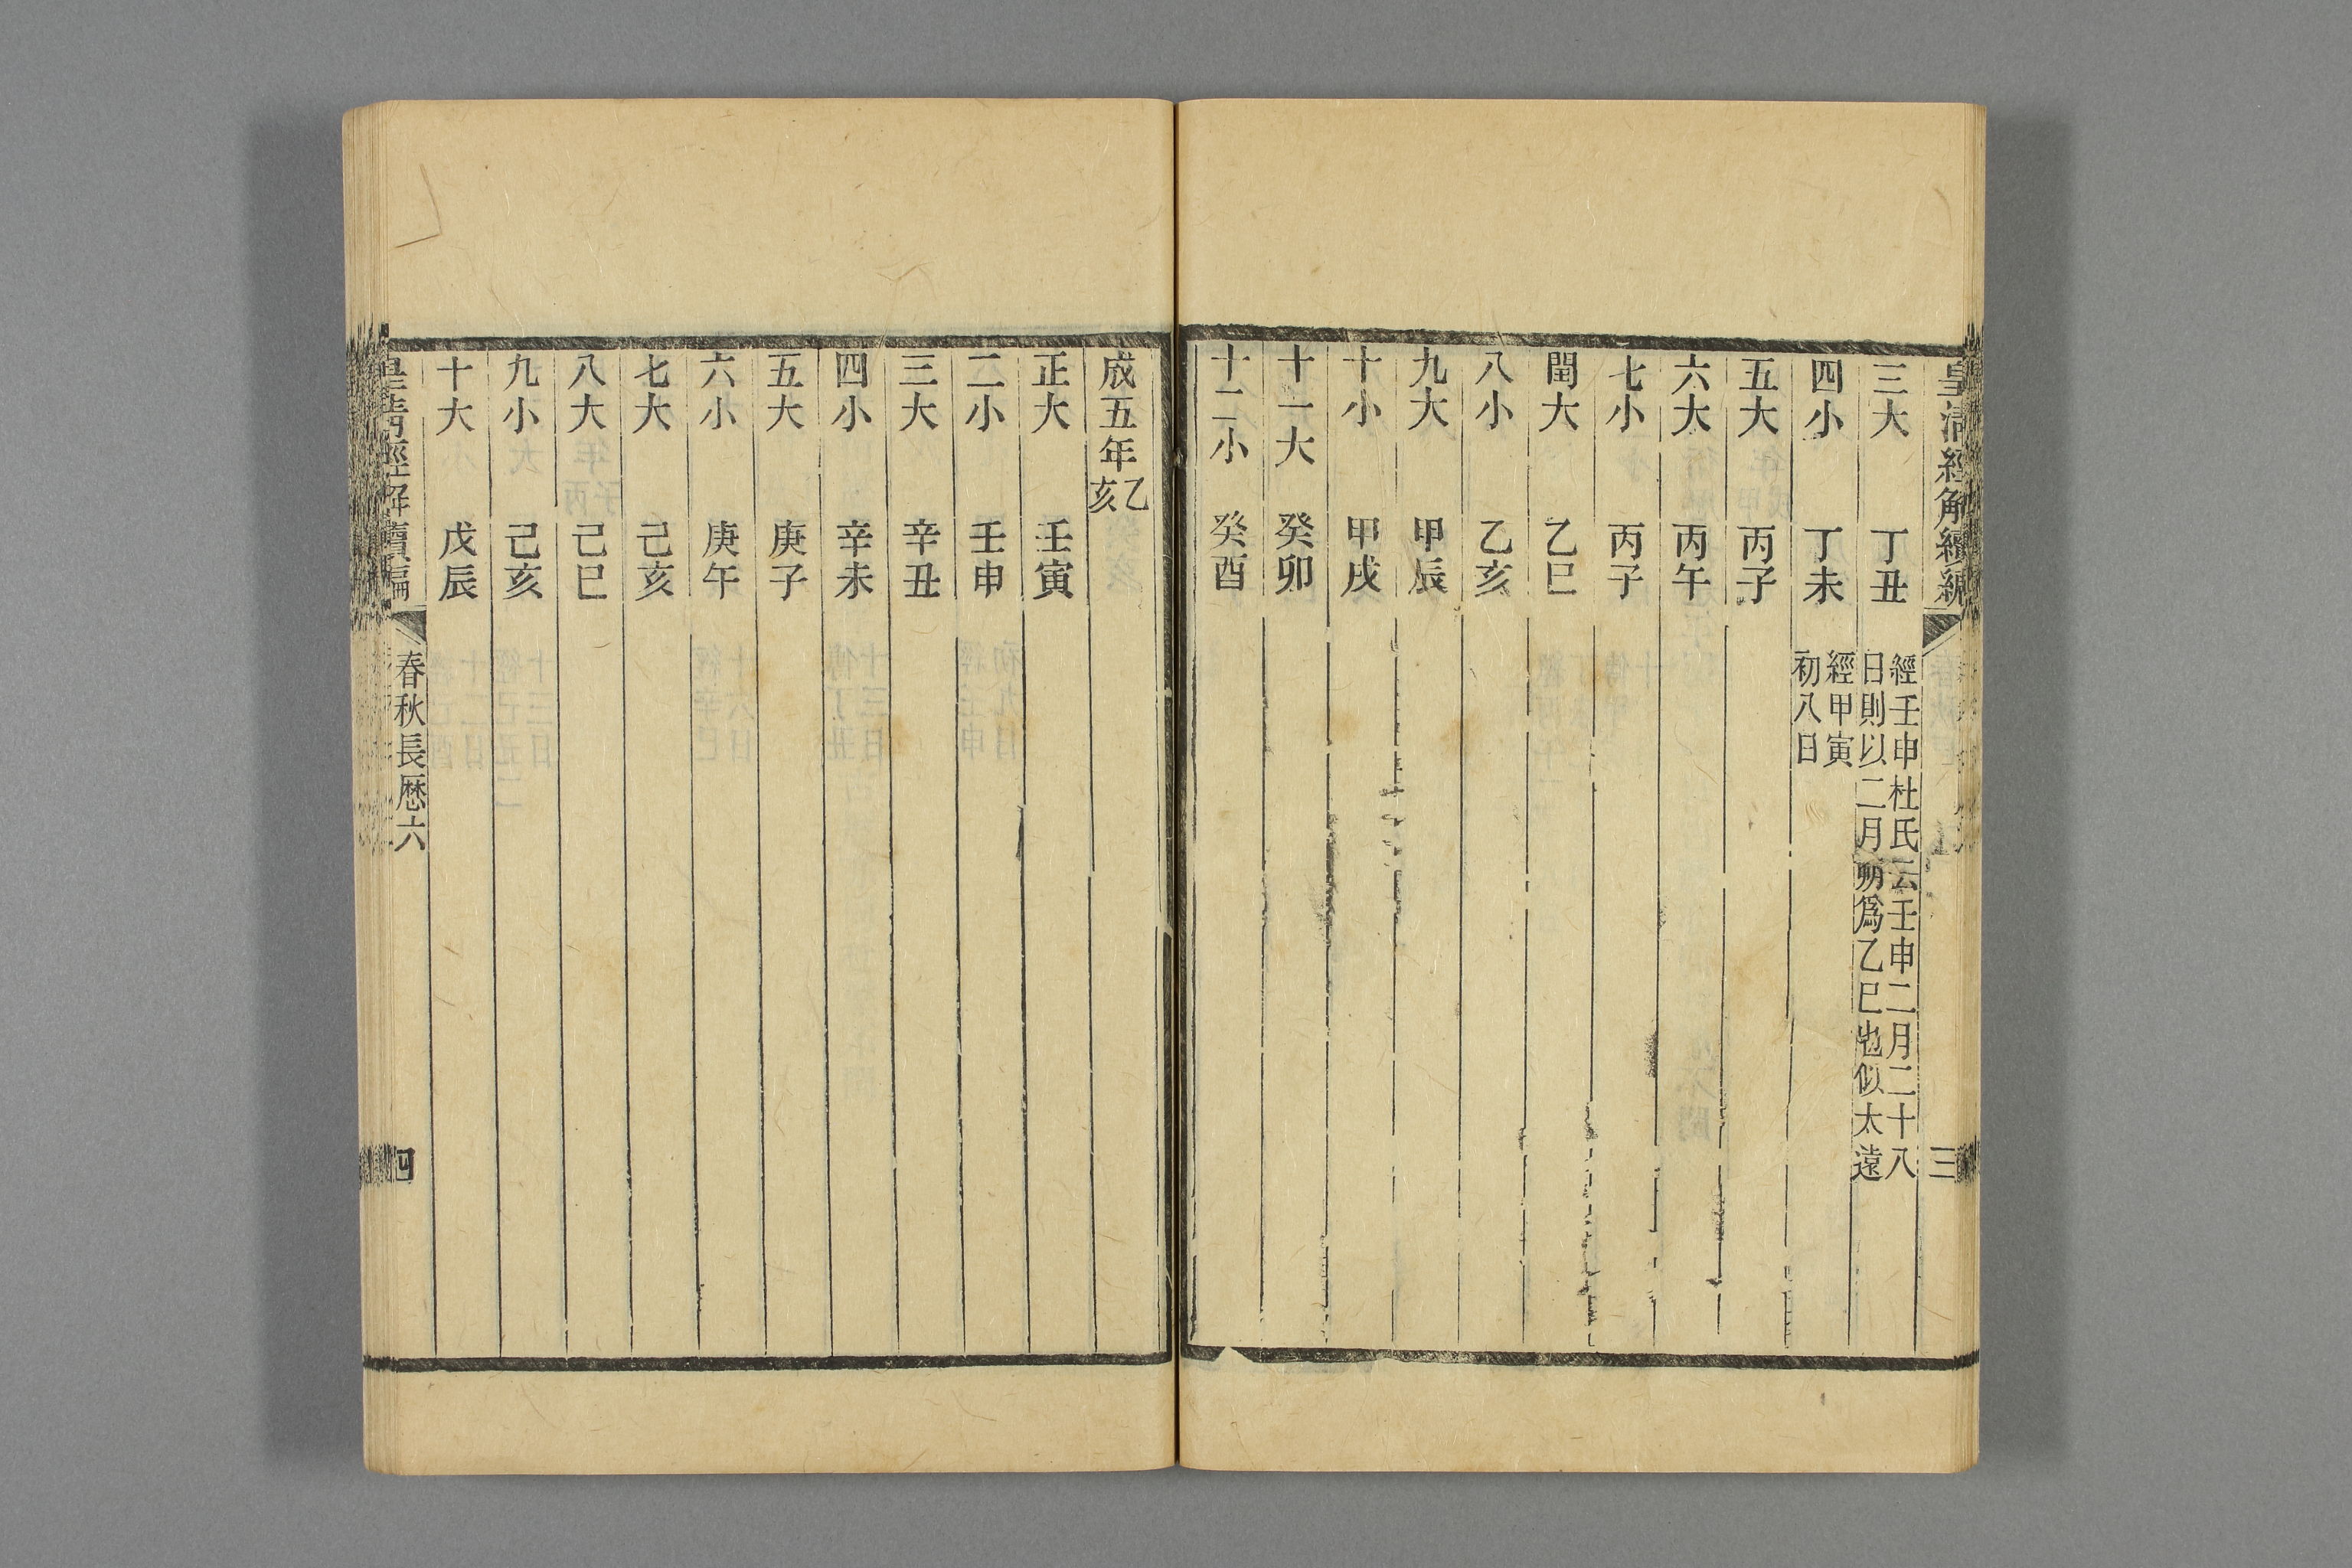 皇清經解續編
三
三大　丁丑　經壬申杜氏云壬申二月二十八
日則以二月朔爲乙巳也似太遠
四小　丁未　經甲寅
初八日
五大　丙子
六大　丙午
七小　丙子
閏大　乙巳
八小　乙亥
九大　甲辰
十小　甲戌
十一大　癸卯
十二小　癸酉
成五年乙亥
正大　壬寅
二小　壬申
三大　辛丑
四小　辛未
五大　庚子
六小　庚午
七大　己亥
八大　己巳
九小　己亥
十大　戊辰
皇清經解續編　春秋長厤六　四